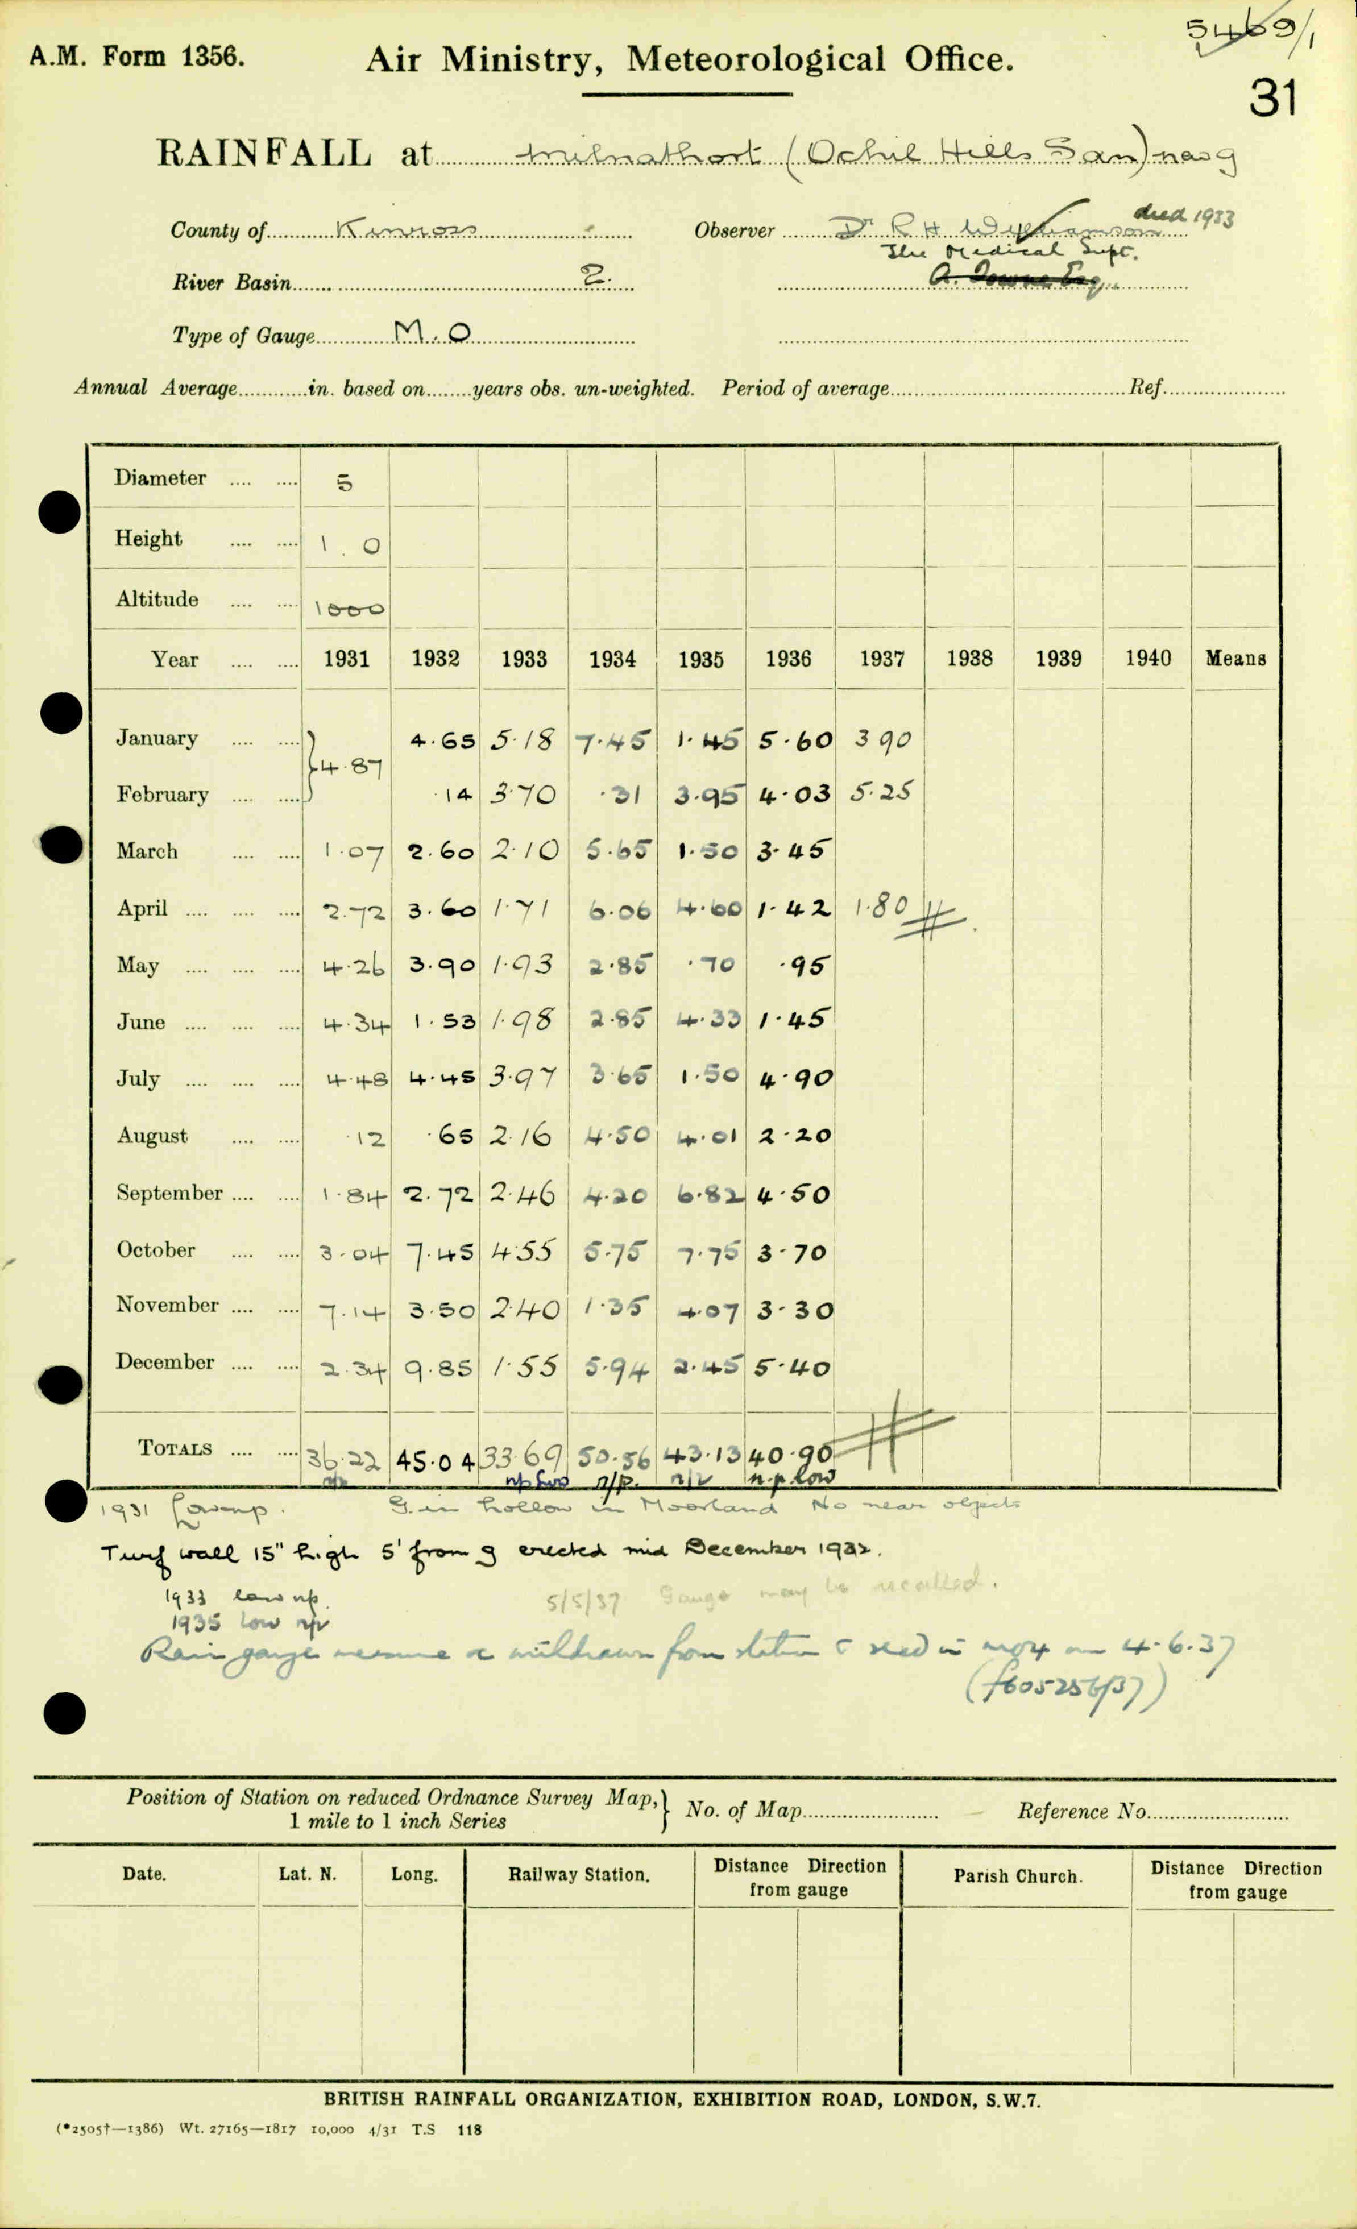 5469/1
A.M. Form 1356. Air Ministry, Meteorological Office.
31
RAINFALL at Milnathort (Ochil Hills San) new g
County of Kinross Observer Dr R H Williamson died 1933
The Medical Supt.
River Basin 2. A. Towne Esq.
Type of Gauge M.O
Annual Average in. based on years obs. un-weighted. Period of average Ref.
Diameter 5
Height 1.0
Altitude 1000
Year 1931 1932 1933 1934 1935 1936 1937 1938 1939 1940 Means
January } 4.65 5.18 7.45 1.45 5.60 3 90
4.87
February .14 3.70 .31 3.95 4.03 5.25
March 1.07 2.60 2.10 5.65 1.50 3.45
April 2.72 3.60 1.71 6.06 4.60 1.42 1.80
May 4.26 3.90 1.93 2.85 .70 .95
June 4.34 1.53 1.98 2.85 4.33 1.45
July 4.48 4.45 3.97 3.65 1.50 4.90
August .12 .65 2.16 4.50 4.01 2.20
September 1.84 2.72 2.46 4.20 6.82 4.50
October 3.04 7.45 4.55 5.75 7.75 3.70
November 7.14 3.50 2.40 1.35 4.07 3.30
December 2.34 9.85 1.55 5.94 2.45 5.40
TOTALS 36.22 45.04 33.69 50.56 43.13 40.90
n/p n/p. n/p n.p. low
1931 Low n.p. G. in hollow in Moorland No near objects
Turf wall 15" high 5' from g erected mid December 1932.
1933 low n.p. 5/5/37 Gauge may be recalled.
1935 low n/p
Rain gauge measure withdrawn from station & recd in MO4 on 4.6.37
(f605256/37)
Position of Station on reduced Ordnance Survey Map, } No. of Map Reference No.
1 mile to 1 inch Series
Date. Lat. N. Long. Railway Station. Distance Direction from gauge Parish Church. Distance Direction from gauge
BRITISH RAINFALL ORGANIZATION, EXHIBITION ROAD, LONDON, S.W.7.
(*2505†—1386) Wt. 27165—1817 10,000 4/31 T.S 118